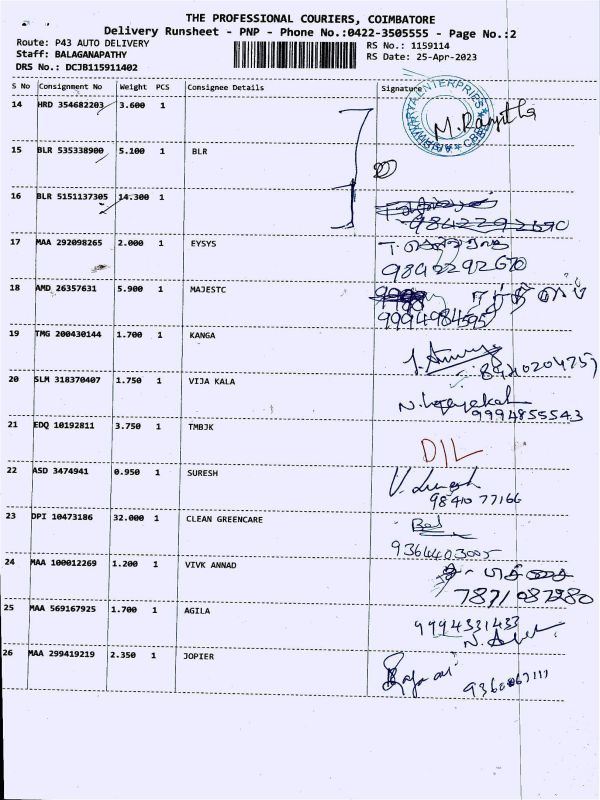 THE PROFESSIONAL COURIERS, COIMBATORE
Delivery Runsheet - PNP - Phone No.:0422-3505555 - Page No.:2
Route: P43 AUTO DELIVERY
RS No.: 1159114
Staff: BALAGANAPATHY
RS Date: 25-Apr-2023
DRS No.: DCJB115911402
S No Consignment No Weight PCS Consignee Details Signature
14 HRD 354682203 3.600 1
M. Ranjitha
15 BLR 535338900 5.100 1 BLR
16 BLR 5151137305 14.300 1
9842292690
17 MAA 292098265 2.000 1 EYSYS
9842292670
18 AMD 26357631 5.900 1 MAJESTC
19 TMG 200430144 1.700 1 KANGA
20 SLM 318370407 1.750 1 VIJA KALA
9994855543
21 EDQ 10192811 3.750 1 TMBJK
D/L
22 ASD 3474941 0.950 1 SURESH
98410 77166
23 DPI 10473186 32.000 1 CLEAN GREENCARE
9364403005
24 MAA 100012269 1.200 1 VIVK ANNAD
7871087280
25 MAA 569167925 1.700 1 AGILA
9994331433
26 MAA 299419219 2.350 1 JOPIER